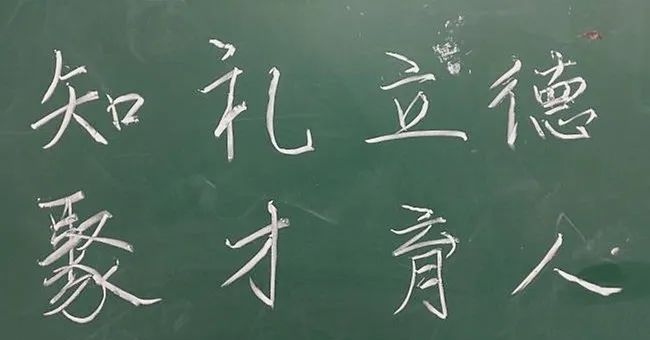 知礼立德
聚才育人